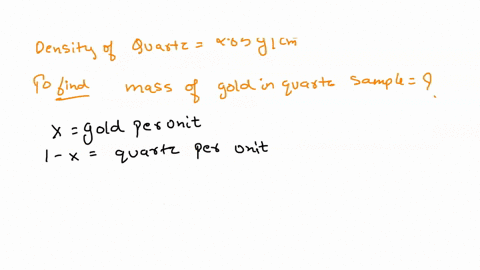 Density of Quartz = 2.65 g/cm
To find mass of gold in quartz sample = ?
x = gold per unit
1 - x = quartz per unit